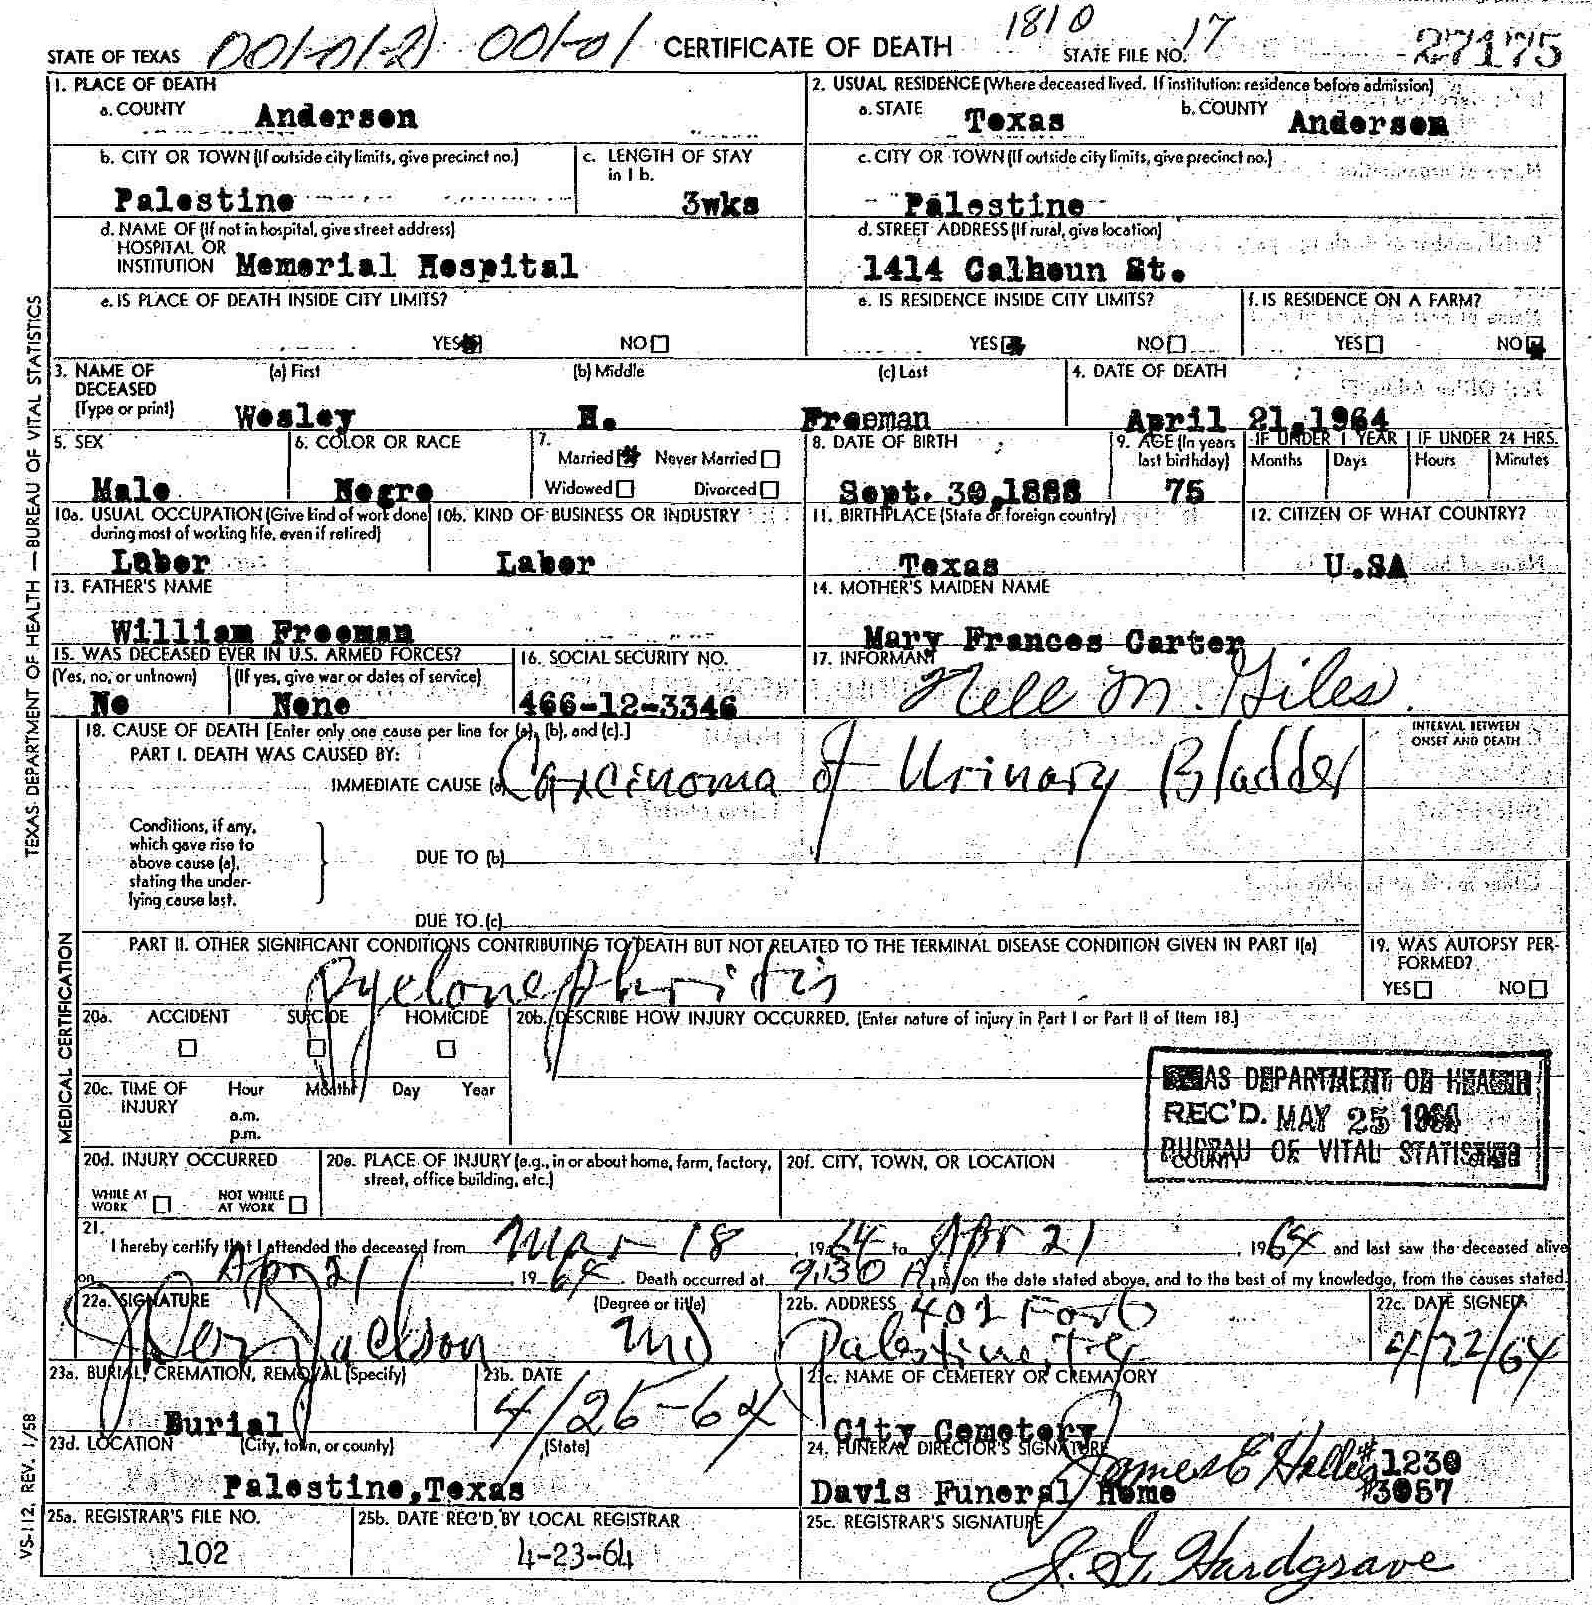 STATE OF TEXAS 001-01-2 001-01 CERTIFICATE OF DEATH 1810 STATE FILE NO. 17 27175
1. PLACE OF DEATH
a. COUNTY Anderson
2. USUAL RESIDENCE (Where deceased lived. If institution: residence before admission)
a. STATE Texas b. COUNTY Anderson
b. CITY OR TOWN (If outside city limits, give precinct no.) Palestine
c. LENGTH OF STAY in 1b. 3wks
c. CITY OR TOWN (If outside city limits, give precinct no.) Palestine
d. NAME OF (If not in hospital, give street address)
HOSPITAL OR
INSTITUTION Memorial Hospital
d. STREET ADDRESS (If rural, give location)
1414 Calhoun St.
e. IS PLACE OF DEATH INSIDE CITY LIMITS?
YES NO
e. IS RESIDENCE INSIDE CITY LIMITS?
YES NO
f. IS RESIDENCE ON A FARM?
YES NO
3. NAME OF DECEASED (Type or print)
(a) First (b) Middle (c) Last
Wesley H. Freeman
4. DATE OF DEATH
April 21,1964
5. SEX Male
6. COLOR OR RACE Negro
7. Married Never Married
Widowed Divorced
8. DATE OF BIRTH Sept. 30,1888
9. AGE (In years last birthday) 75
IF UNDER 1 YEAR Months Days
IF UNDER 24 HRS. Hours Minutes
10a. USUAL OCCUPATION (Give kind of work done during most of working life, even if retired)
Labor
10b. KIND OF BUSINESS OR INDUSTRY
Labor
11. BIRTHPLACE (State or foreign country)
Texas
12. CITIZEN OF WHAT COUNTRY?
U.SA
13. FATHER'S NAME
William Freeman
14. MOTHER'S MAIDEN NAME
Mary Frances Carter
15. WAS DECEASED EVER IN U.S. ARMED FORCES?
(Yes, no, or unknown) (If yes, give war or dates of service)
No None
16. SOCIAL SECURITY NO.
466-12-3346
17. INFORMANT
Nell M. Giles
18. CAUSE OF DEATH [Enter only one cause per line for (a), (b), and (c).]
PART I. DEATH WAS CAUSED BY:
IMMEDIATE CAUSE (a) Carcinoma of Urinary Bladder
INTERVAL BETWEEN ONSET AND DEATH
Conditions, if any, which gave rise to above cause (a), stating the underlying cause last.
DUE TO (b)
DUE TO (c)
PART II. OTHER SIGNIFICANT CONDITIONS CONTRIBUTING TO DEATH BUT NOT RELATED TO THE TERMINAL DISEASE CONDITION GIVEN IN PART I(a)
Pyelonephritis
19. WAS AUTOPSY PERFORMED?
YES NO
20a. ACCIDENT SUICIDE HOMICIDE
20b. DESCRIBE HOW INJURY OCCURRED. (Enter nature of injury in Part I or Part II of Item 18.)
20c. TIME OF INJURY Hour Month Day Year
a.m.
p.m.
TEXAS DEPARTMENT OF HEALTH
REC'D. MAY 25 1964
BUREAU OF VITAL STATISTICS
20d. INJURY OCCURRED
WHILE AT WORK NOT WHILE AT WORK
20e. PLACE OF INJURY (e.g., in or about home, farm, factory, street, office building, etc.)
20f. CITY, TOWN, OR LOCATION COUNTY STATE
21.
I hereby certify that I attended the deceased from Mar 18, 1964 to Apr 21, 1964 and last saw the deceased alive
on Apr 21, 1964. Death occurred at 9:30 A.m. on the date stated above, and to the best of my knowledge, from the causes stated.
22a. SIGNATURE (Degree or title)
Jackson MD
22b. ADDRESS 402 Fort
Palestine, Tx
22c. DATE SIGNED
4/22/64
23a. BURIAL, CREMATION, REMOVAL (Specify)
Burial
23b. DATE
4/25-64
23c. NAME OF CEMETERY OR CREMATORY
City Cemetery
23d. LOCATION (City, town, or county) (State)
Palestine,Texas
24. FUNERAL DIRECTOR'S SIGNATURE
James E #1230
Davis Funeral Home #3057
25a. REGISTRAR'S FILE NO.
102
25b. DATE REC'D BY LOCAL REGISTRAR
4-23-64
25c. REGISTRAR'S SIGNATURE
J. G. Hardgrave
TEXAS DEPARTMENT OF HEALTH — BUREAU OF VITAL STATISTICS
MEDICAL CERTIFICATION
VS-112, REV. 1/58